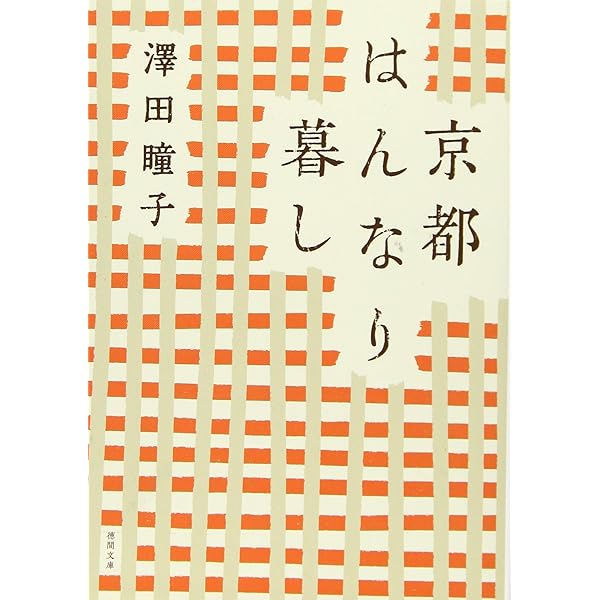 京都
はんなり
暮し
澤田瞳子
徳間文庫